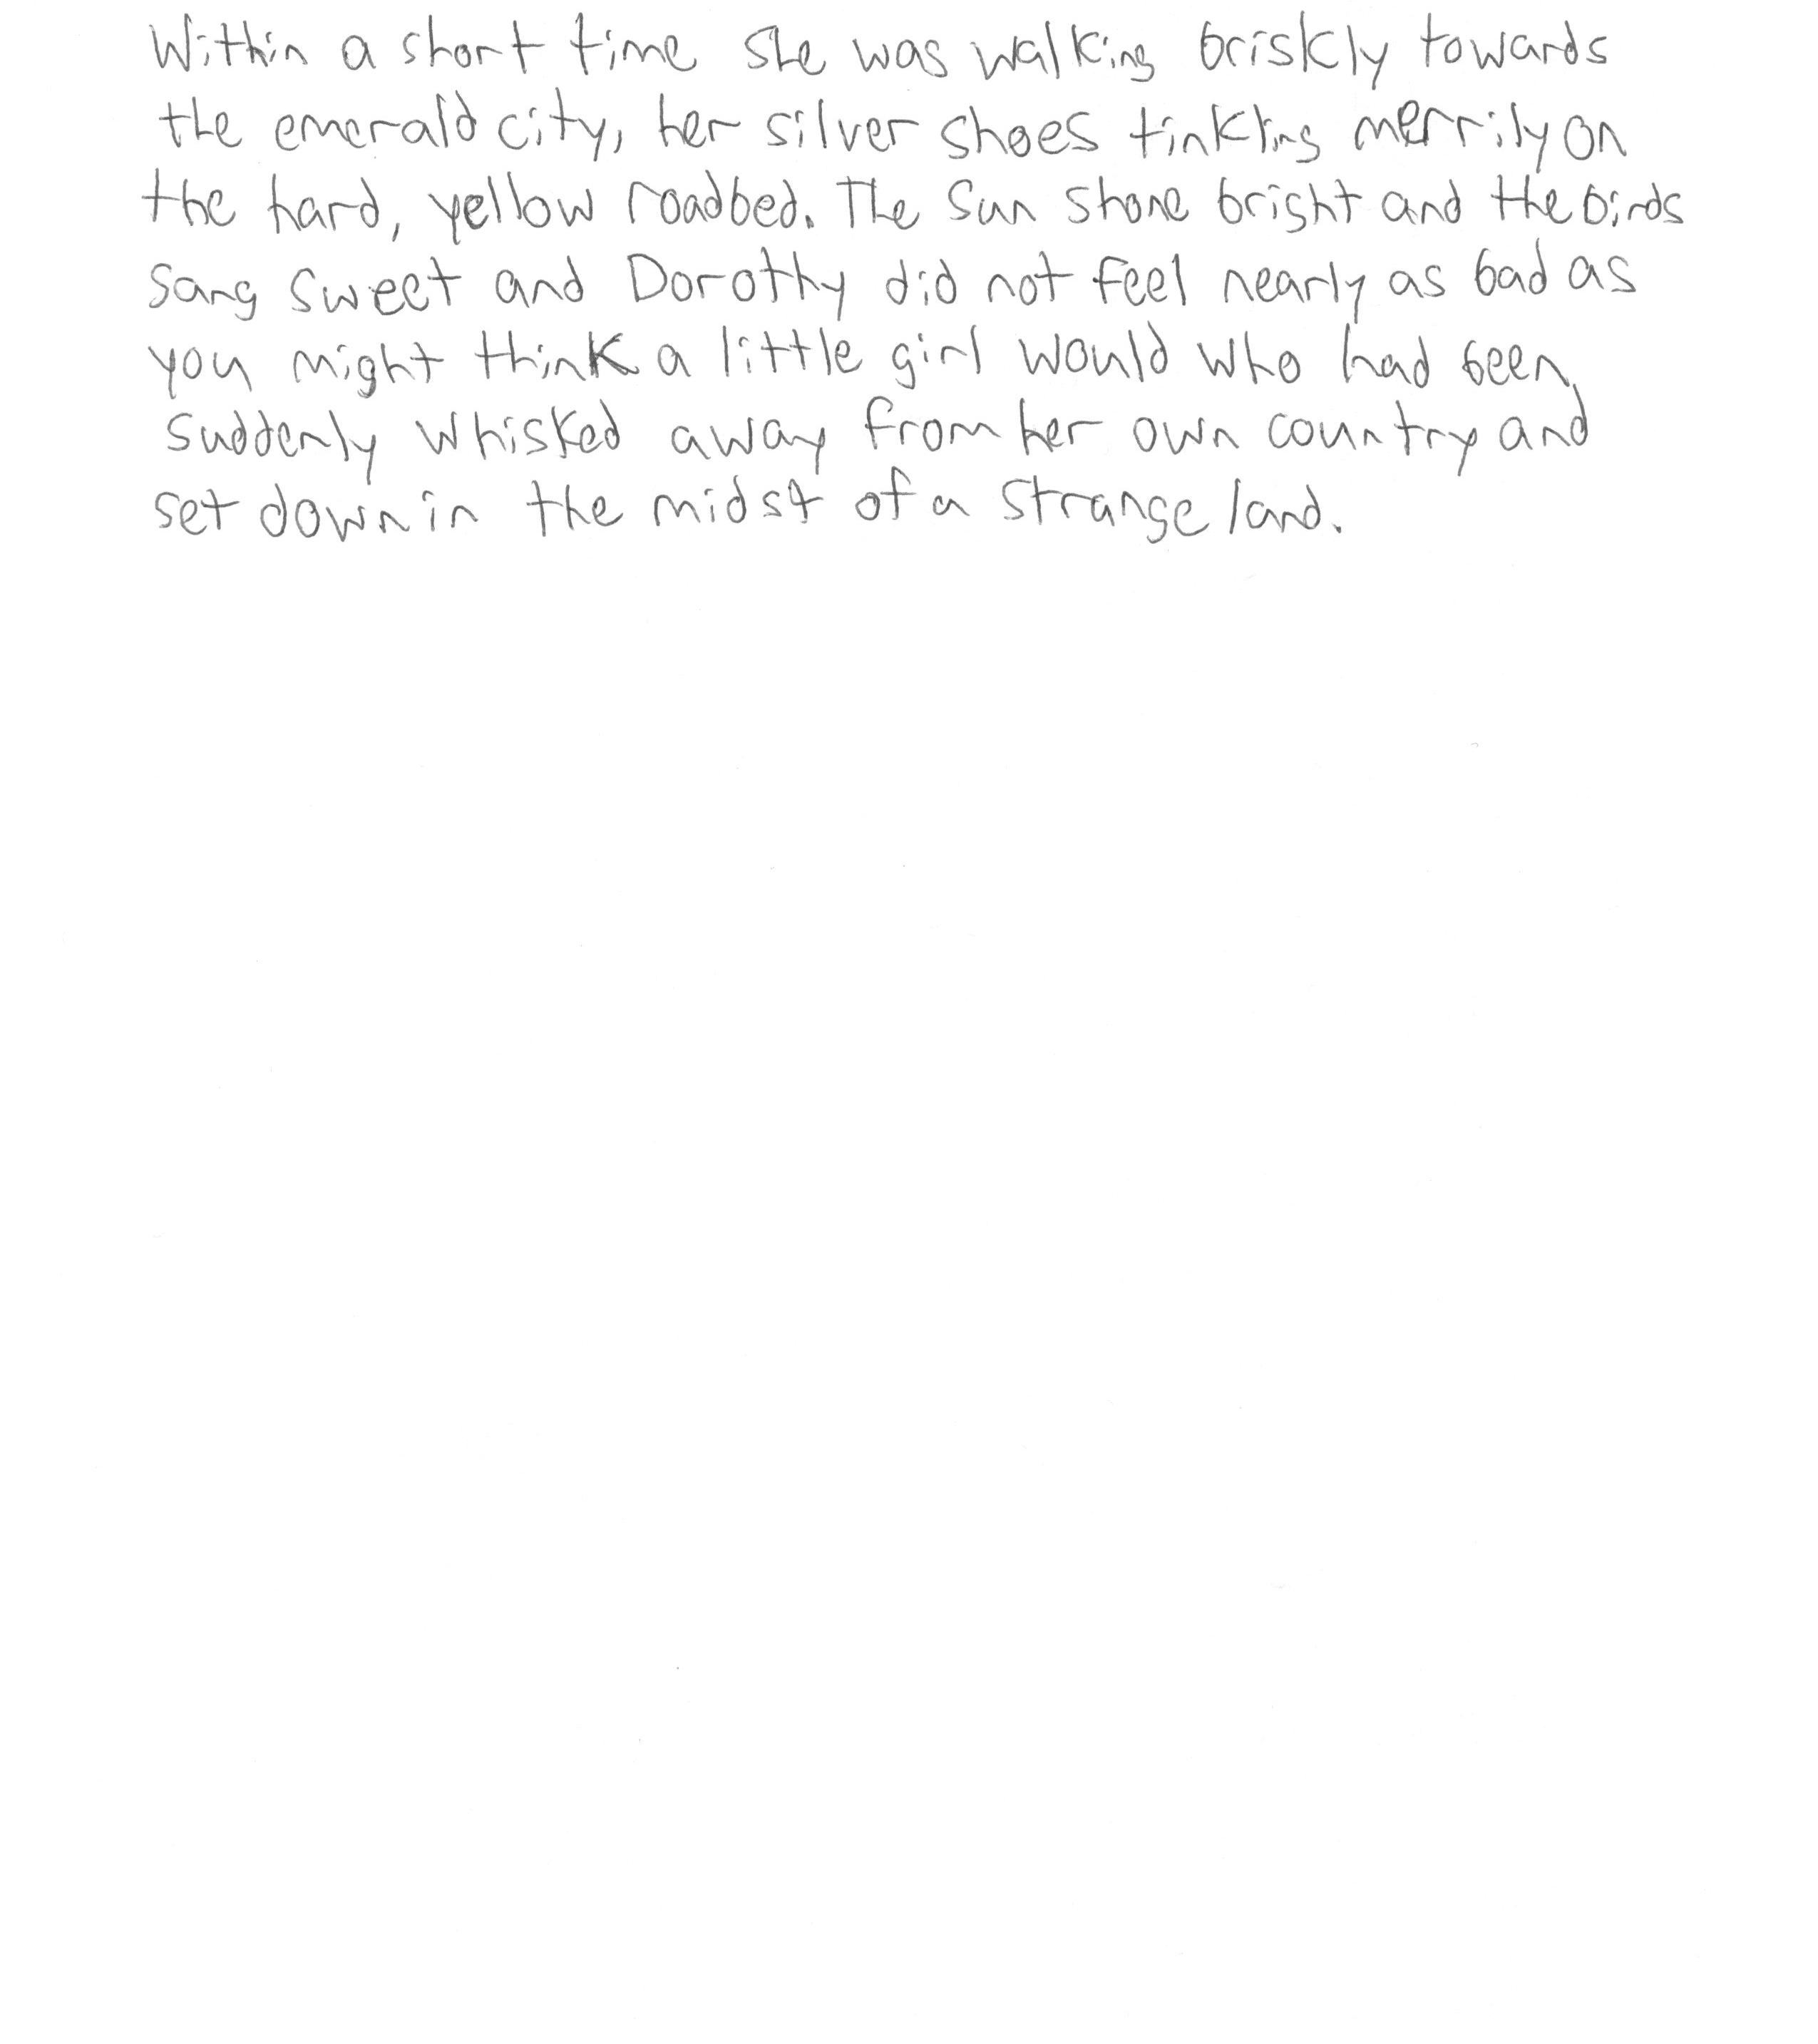 Within a short time she was walking briskly towards
the emerald city, her silver shoes tinkling merrily on
the hard, yellow roadbed. The sun shone bright and the birds
sang sweet and Dorothy did not feel nearly as bad as
you might think a little girl would who had been
suddenly whisked away from her own country and
set down in the midst of a strange land.